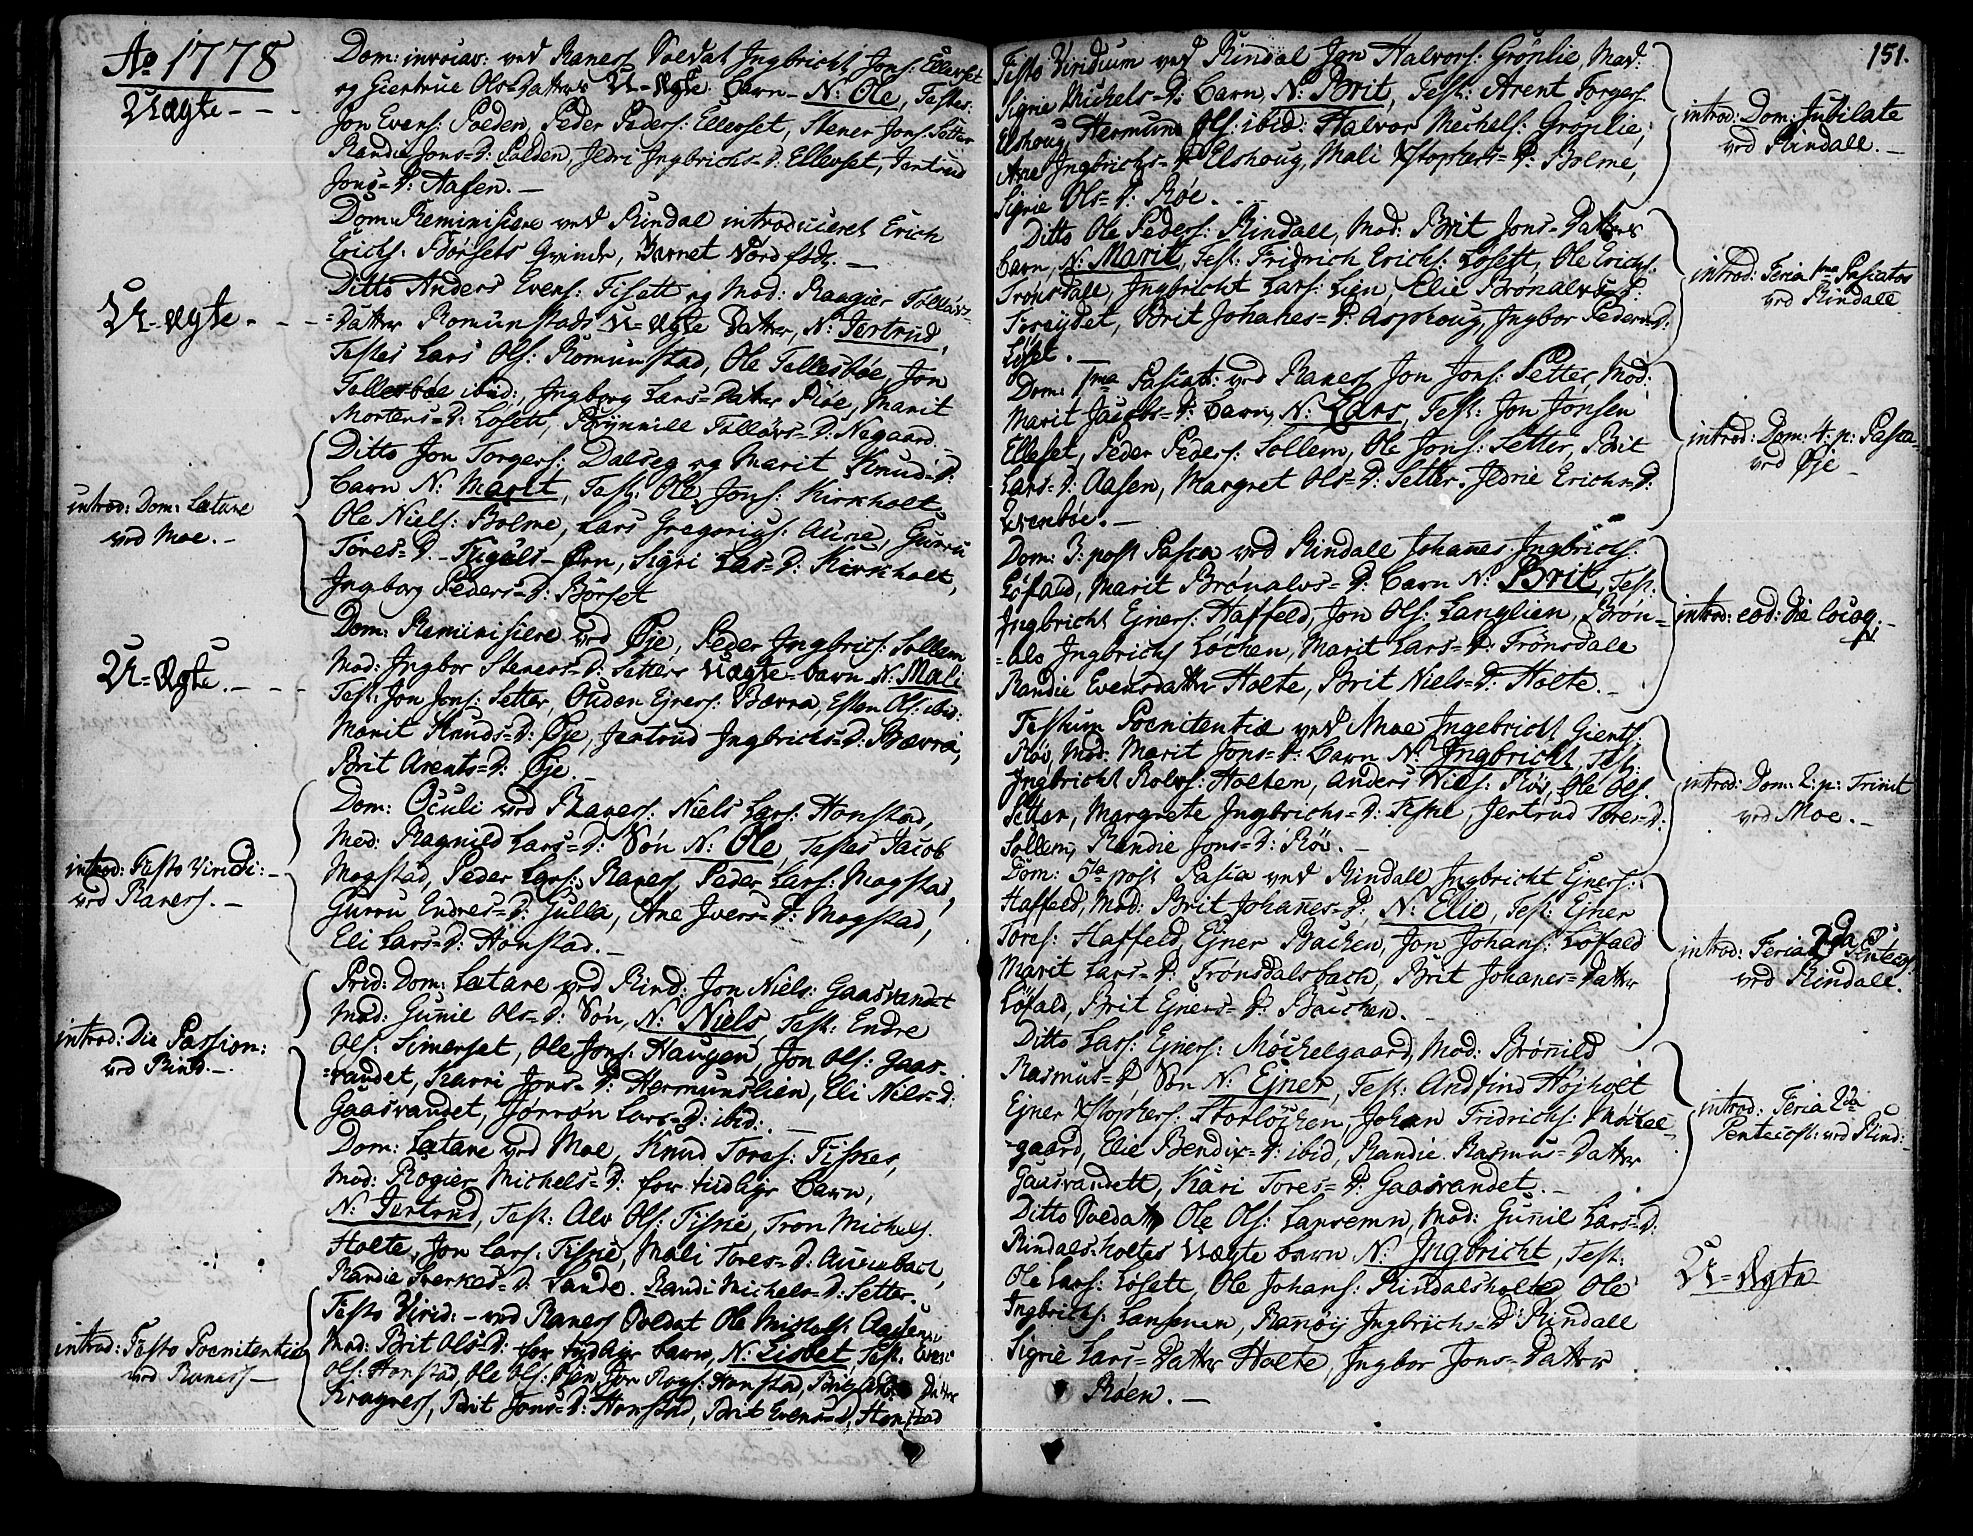 Ao 1778
Uægte - - -
Dom: invocav: ved Raness Soldat Ingbricht Jons: Ellevset
og Giertrue Ols-Datters U=Ægte Barn - N: Ole, Testes:
Jon Evens: Solden, Peder Peders: Ellerset, Stener Jons: Setter
Randie Jons=D: Solden, Jedri Ingbrichs=D: Ellevset, Jertrud
Jons=D: Aasen. —
Dom: Reminiscere ved Rindal introduceret Erich
Erichs: Børsets Qvinde, Barnet Død født. —
U=Ægte. - - -
Ditto Anders Evens: Fisatt og Mod: Raagier Tolløvs=
=Datter Romunstads U=Ægte Datter, N: Jertrud,
Testes Lars Ols: Romunstad, Ole Tallesbøe, Jon
Tallesbøe ibid:, Ingborg Lars=Datter Røe, Marit
Mortens=D: Losett, Brynnill Tolløvs=D: Negaard.
introd: Dom: Lætare
ved Moe. —
Ditto Jon Torgers: Dalseg og Marit Knud=D:
Barn N: Marit, Test: Ole Jons: Kirkholt
Ole Niels: Bolme, Lars Gregorius: Aune, Gurru
Tores=D: Fugels-Ørn, Sigri Las=D: Kirkholt,
Ingborg Peders=D: Børset
U=Ægte. - - -
Dom: Reminiscere ved Øje, Peder Ingbrics: Sollem
Mod: Ingbor Steners=D: Setters Uægte=barn N: Mali
Test: Jon Jons: Setter, Ouden Ejners: Bævra, Esten Ols: ibid:
Marit Knuds=D: Øje, Jertrud Ingbrichs=D: Bævra,
Brit Arents=D: Øje. —
introd: Festo Viridi: —
ved Raness. —
Dom: Oculi ved Raness: Niels Lars: Honstad,
Mod: Ragnild Lars=D: Søn N: Ole, Testes Jacob
Mogstad, Peder Lars: Raness, Peder Lars: Mogstad,
Gurru Endres=D: Gulla, Ane Ivers=D: Mogstad,
Eli Lars=D: Honstad. —
introd: Die Passion:
ved Rind. —
Prid: Dom: Lætare ved Rind: Jon Niels: Gaasvandet
Mod: Gunnil Ols=D: Søn, N: Niels, Test: Endre
Ols: Simerset, Ole Jons: Haugen, Jon Ols: Gaas-
=vandet, Karri Jons=D: Hermunslien, Eli Niels=D:
Gaasvandet, Jorrøn Lars=D: ibid: —
Dom: Lætare ved Moe, Knud Tores: Fiskes,
Mod: Rogier Michels=D: for tidligr Barn,
N: Jertrud, Test: Alv Ols: Fiske, Tron Michels:
Holte, Jon Lars: Fiske, Mali Tores=D: Aunebach,
Randie Sverkes=D: Sande. Randi Michels=D: Setter.
introd: Festo Poenitentiæ
ved Raness —
Festo Virid: - ved Raness Soldat Ole
Mod: Brit Ols=D: for tydligr barn, N: Lisbet, Test: Even
Ols: Honstad, Ole Ols: Øien, Jon Rogs: Honstad, Brit Datter
Kragness, Brit Jons=D: Honstad, Brit Evens=D: Honstad
151.
Festo Viridium ved Rindal Jon Halvors: Grønlie, Mod:
Sigrie Michels=D: Barn, N: Brit, Test: Arent Torgers:
Elshoug, Hermund Ols: ibid: Halvor Mechels: Grønlie,
Ane Ingbrichs=D: Elshoug, Mali Xstophers=D: Bolme,
Sigrie Ols=D: Røe. —
introd: Dom: Jubilate
ved Rindale. —
Ditto Ole Peders: Rindale, Mod: Brit Jons=Datters
Barn, N: Marit, Test: Fridrich Erichs: Losett, Ole Erichs:
Trønsdale, Ingbricht Lars: Lien, Elie Brønalvs=D:
Foreydet, Brit Johanes=D: Asphoug, Ingbor Peders=D:
Løset. —
introd: Feria 1ma Pascatos
ved Rindale
Dom: 1ma Pascat: ved Raness Jon Jons: Setter, Mod:
Marit Jacobs=D: Barn, N: Lars, Test: Jon Jonsen
Elleset, Peder Peders: Sollem, Ole Jons: Setter, Brit
Lars=D: Aasen, Margret Ols=D: Setter. Jedrie Erichs=D:
Qvenbøe. —
introd: Dom: 4: p: Pasca
ved Øje —
Dom: 3: post Pasca ved Rindale Johanes Ingbrichs:
Løfald, Marit Brønalvs=D: Barn N: Brit, Test:
Ingbricht Ejners: Haffeld, Jon Ols: Langlien, Brøn=
=als Ingbrichs Løchen, Marit Lars=D: Trønsdale
Randie Evensdatter Holte, Brit Niels=D: Holte. —
introd: eod: die locoq. —
Festum Poenitentiæ ved Moe Ingebricht Gients:
Røe, Mod: Marit Jons=D: Barn N: Ingbricht, Test:
Ingbricht Rolvs: Holten, Anders Niels: Røe, Ole Ols:
Settem, Margrete Ingbrichs=D: Fiske, Jertrud Tores=D:
Sollem, Randie Jons=D: Røe. —
introd: Dom: 2: p: Trinit
ved Moe. —
Dom: 5ta post Pasca ved Rindale Ingbricht Ejners:
Haffeld, Mod: Brit Johanes=D: N: Elie, Test: Ejner
Tores: Haffeld, Ejner Bachen, Jon Johans: Løfald
Marit Lars=D: Trønsdalsbach, Brit Johanes=Datter
Løfald, Brit Ejners=D: Bachen. —
introd: Feria 2da Pentecos:
ved Rindale.
Ditto Lars: Ejners: Møchelgaard, Mod: Brønild
Rasmus=D: Søn N: Ejner, Test: Andfind Højholt
Ejner Xstophers: Storløchen, Johan Fridrichs: Møchel-
-gaard, Elie Bendix=D: ibid, Randie Rasmus=Datter
Gaasvandett, Kari Tores=D: Gaasvandet. —
introd: Feria 2da
Pentecost: ved Rind:
Ditto Soldat Ole Ols: Lansemn, Mod: Gunnil Lars=D:
Rindals=holtes Uægte barn N: Ingbricht, Test:
Ole Lars: Losett, Ole Johans: Rindalsholte, Ole
Ingbrichs: Lanseman, Rannøy Ingbrichs=D: Rindale
Sigrie Lars=Datter Holte, Ingbor Jons=Datter
Røen. —
U=Ægte